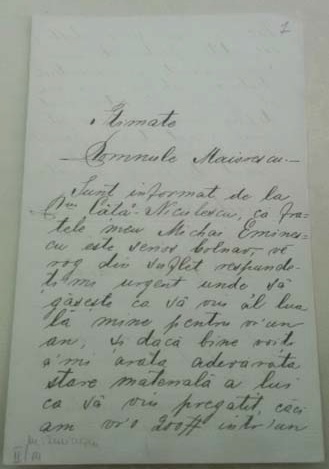 1
Stimate
Domnule Maiorescu.
Sunt informat de la
Dnu Tătă-Niculescu, ca fra-
tele meu Michai Emines-
cu este serios bolnav, vĕ
rog din suflet respunde-
ti mi urgent unde să
găseste ca să viu ăl lua-
la mine pentru vr'un
an, și dacă bine voiti
a'mi arata adeverata
stare materială a lui
ca să viu pregatit, căci
am vr'o 200 # intr'un